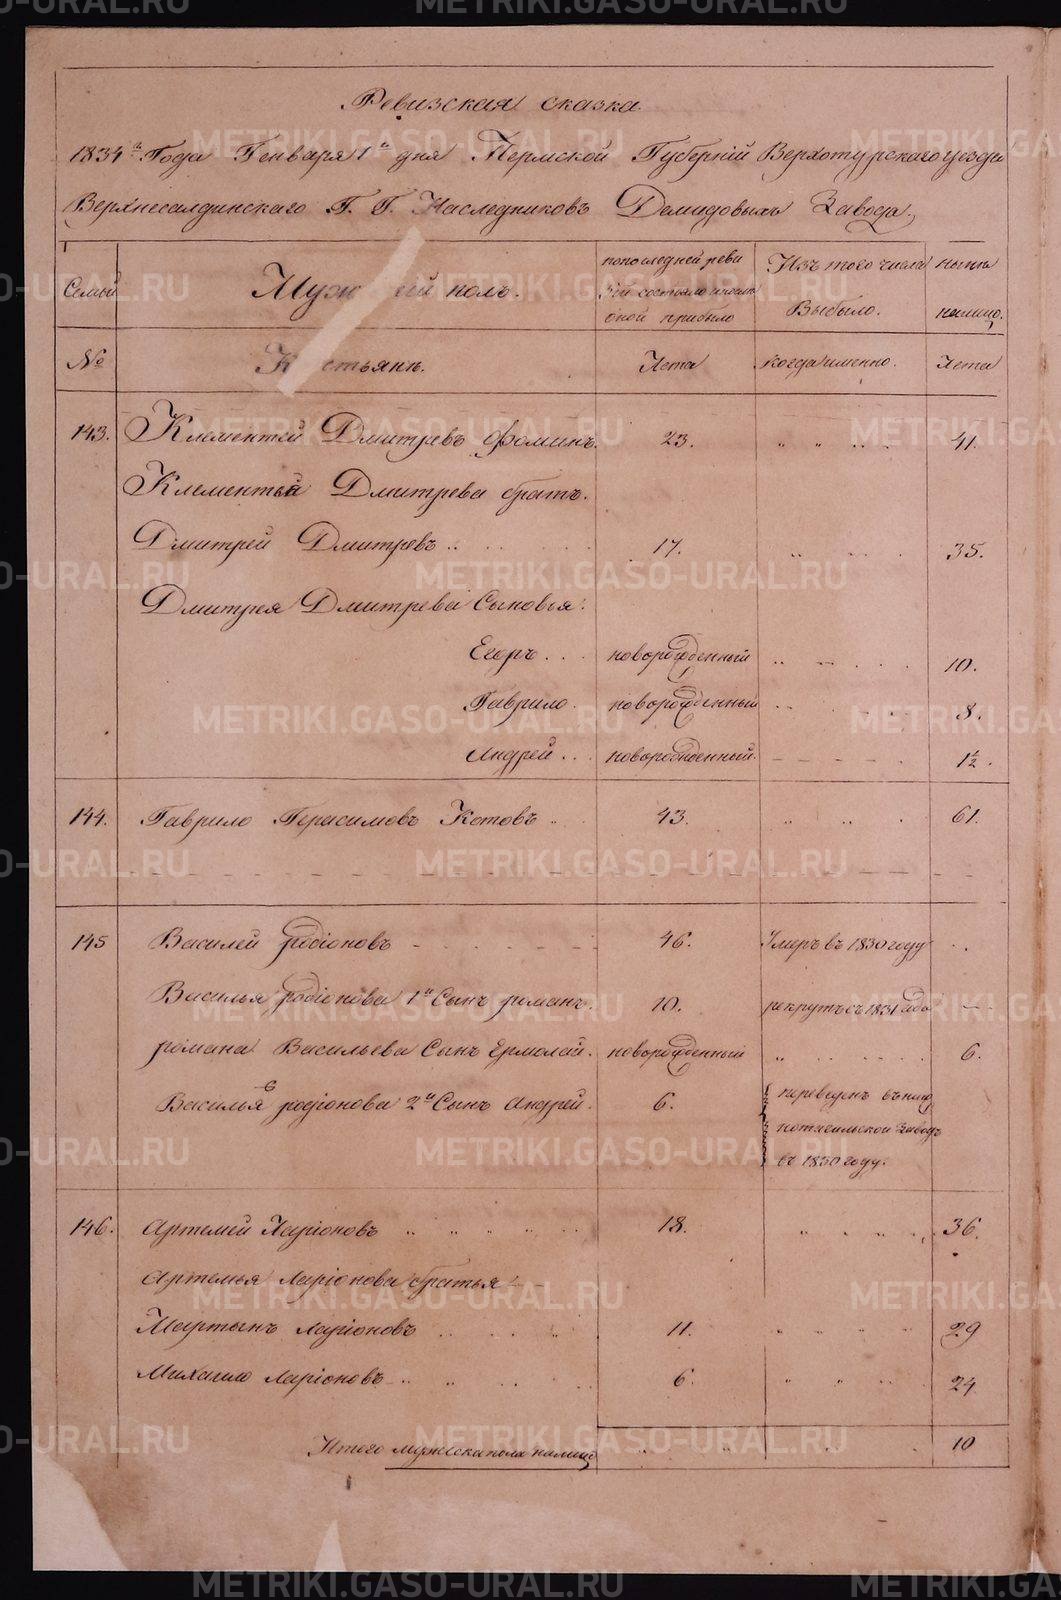 Ревизская сказка
1834го Года Генваря 1го дня Пермской Губерніи Верхотурскаго уезда
Верхнесалдинскаго Г. Г. Наследниковъ Демидовыхъ Завода,
Семьи
Муж ий полъ.
попоследней реви
зіи состояло и
оной прибыло
Изъ того числа
Выбыло.
Ныне
налицо.
№
К стьяне.
Лета
когда именно.
Лета
143. Клементей Дмитревъ Фоминъ. 23. " " " 41.
Клементья Дмитрева братъ.
Дмитрей Дмитревъ .. 17. 35.
Дмитрея Дмитрева Сыновья:
Егоръ... новорожденный 10.
Гаврило. новорожденный 8.
Андрей... новорожденный. 1½.
144. Гаврило Герасимовъ Котовъ 43. 61.
145 Василей родіоновъ 46. Умеръ въ 1830 году
Василья родіонова 1й Сынъ романъ. 10. рекрутъ съ 1831 года
романа Васильева Сынъ Ермолай. новорожденный 6.
Василья родіонова 2й Сынъ Андрей. 6. переведенъ въ ниж
нотагильской заводъ
въ 1830 году.
146. Артемей Ларіоновъ 18. 36.
Артемья Ларіонова братья:
Мартынъ Ларіоновъ 11. 29
Михаило Ларіоновъ 6. 24
Итого мужеска пола налицо 10
METRIKI.GASO-URAL.RU